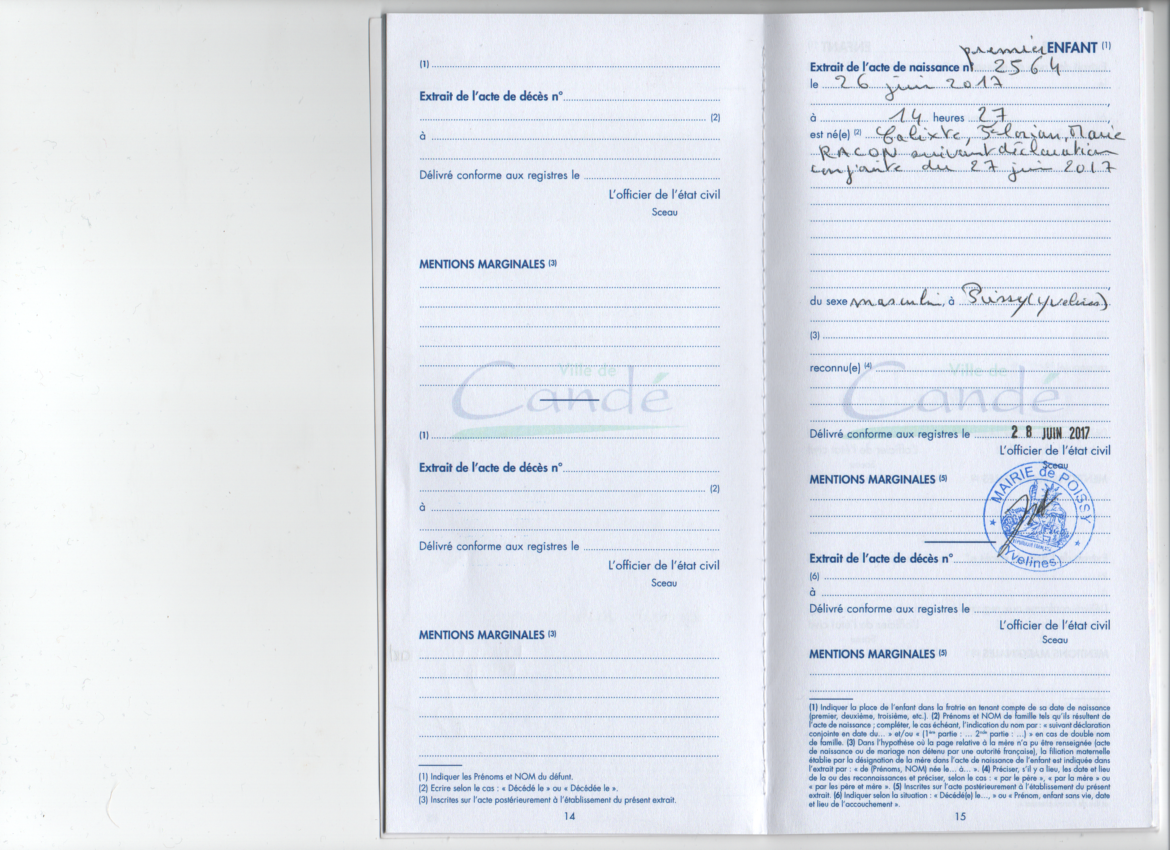 (1)
Extrait de l'acte de décès n°
(2)
à
Délivré conforme aux registres le
L'officier de l'état civil
Sceau
MENTIONS MARGINALES (3)
Ville de
Candé
(1)
Extrait de l'acte de décès n°
(2)
à
Délivré conforme aux registres le
L'officier de l'état civil
Sceau
MENTIONS MARGINALES (3)
(1) Indiquer les Prénoms et NOM du défunt.
(2) Ecrire selon le cas : « Décédé le » ou « Décédée le ».
(3) Inscrites sur l'acte postérieurement à l'établissement du présent extrait.
14
premier ENFANT (1)
Extrait de l'acte de naissance n° 2564
le 26 juin 2017
à 14 heures 27
est né(e) (2) Calixte, Florian, Marie
RACON suivant déclaration
conjointe du 27 juin 2017
du sexe masculin, à Poissy (Yvelines)
(3)
reconnu(e) (4)
Ville de
Candé
Délivré conforme aux registres le 28 JUIN 2017
L'officier de l'état civil
Sceau
MAIRIE de POISSY
(Yvelines)
MENTIONS MARGINALES (5)
Extrait de l'acte de décès n°
(6)
à
Délivré conforme aux registres le
L'officier de l'état civil
Sceau
MENTIONS MARGINALES (5)
(1) Indiquer la place de l'enfant dans la fratrie en tenant compte de sa date de naissance
(premier, deuxième, troisième, etc.). (2) Prénoms et NOM de famille tels qu'ils résultent de
l'acte de naissance ; compléter, le cas échéant, l'indication du nom par : « suivant déclaration
conjointe en date du... » et/ou « (1ère partie : ... 2nde partie : ...) » en cas de double nom
de famille. (3) Dans l'hypothèse où la page relative à la mère n'a pu être renseignée (acte
de naissance ou de mariage non détenu par une autorité française), la filiation maternelle
établie par la désignation de la mère dans l'acte de naissance de l'enfant est indiquée dans
l'extrait par : « de (Prénoms, NOM) née le... à... ». (4) Préciser, s'il y a lieu, les date et lieu
de la ou des reconnaissances et préciser, selon le cas : « par le père », « par la mère » ou
« par les père et mère ». (5) Inscrites sur l'acte postérieurement à l'établissement du présent
extrait. (6) Indiquer selon la situation : « Décédé(e) le..., » ou « Prénom, enfant sans vie, date
et lieu de l'accouchement ».
15